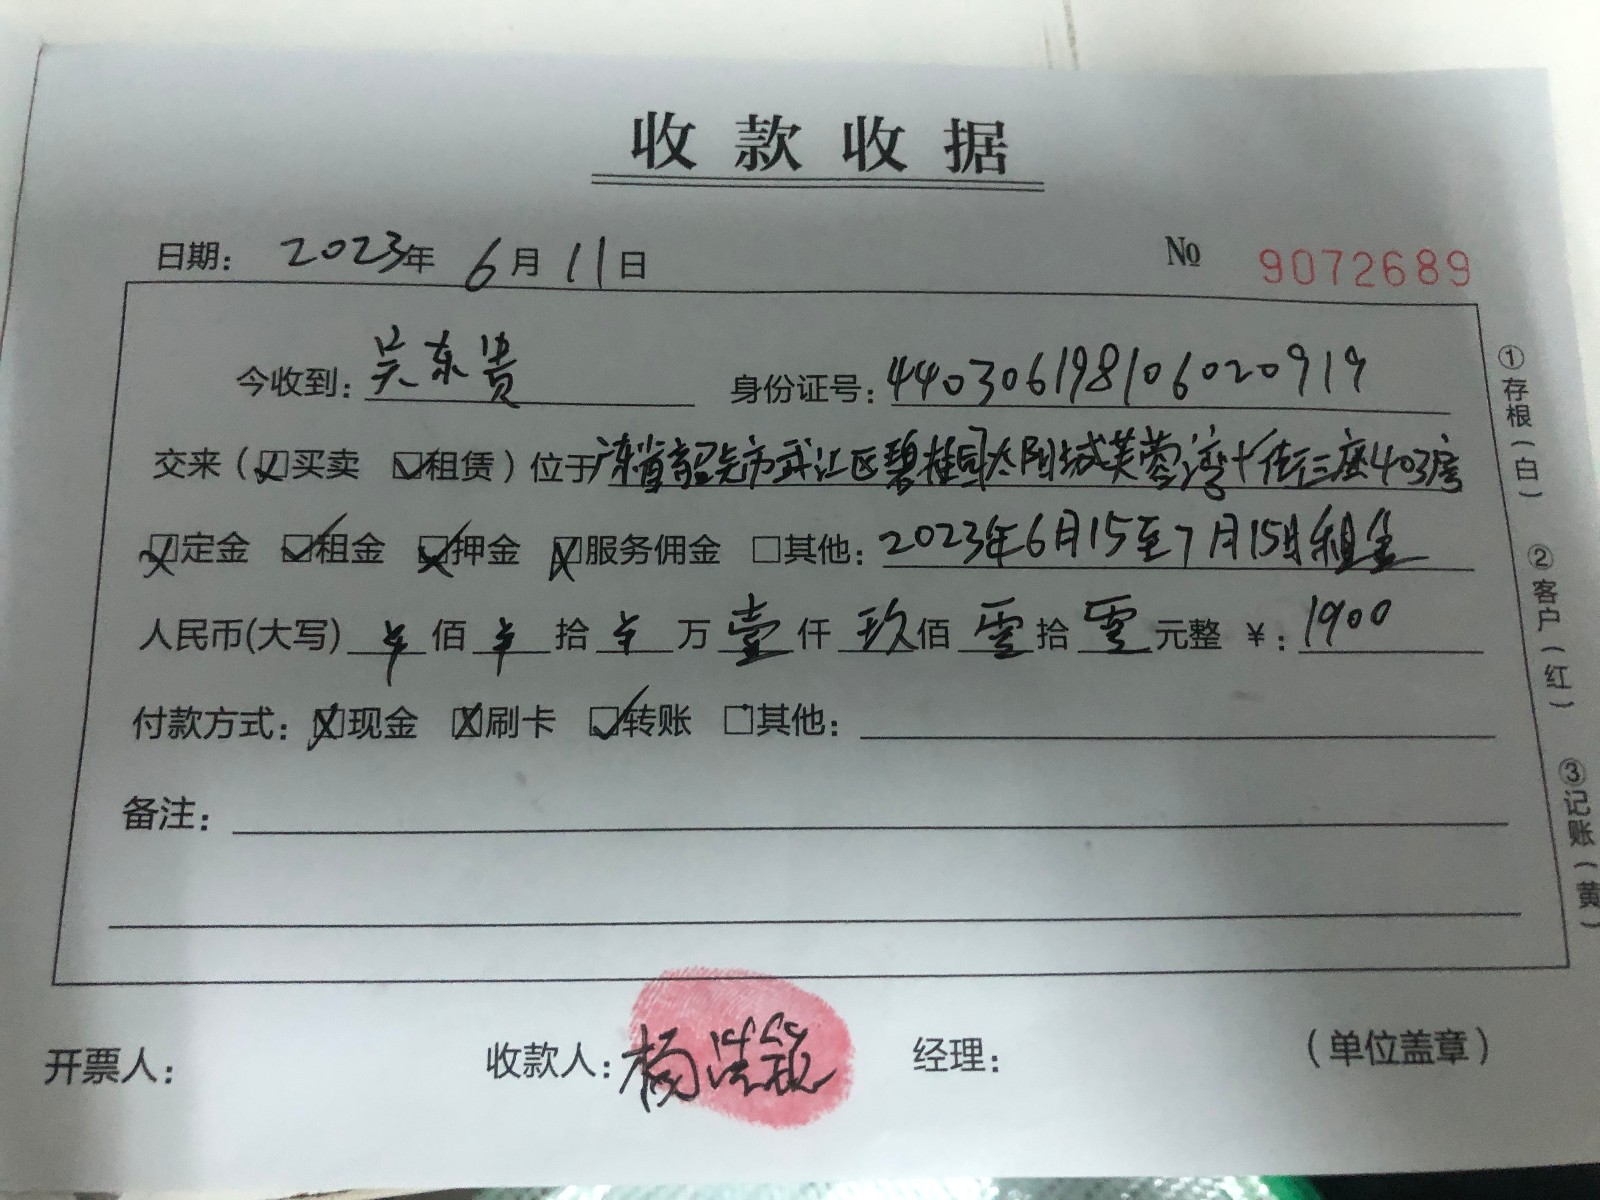 收款收据
日期： 2023年 6月11日 № 9072689
今收到：吴东贵 身份证号：440306198106020919
交来（☒买卖 ☑租赁）位于广东省韶关市武江区碧桂园太阳城芙蓉湾十街三座403房
☒定金 ☑租金 ☒押金 ☒服务佣金 ☐其他：2023年6月15至7月15日租金
人民币(大写) 佰 拾 万 壹仟 玖佰 零拾 零元整 ¥：1900
付款方式：☒现金 ☒刷卡 ☑转账 ☐其他：
备注：
开票人： 收款人：杨浩锐 经理： （单位盖章）
①存根（白） ②客户（红） ③记账（黄）